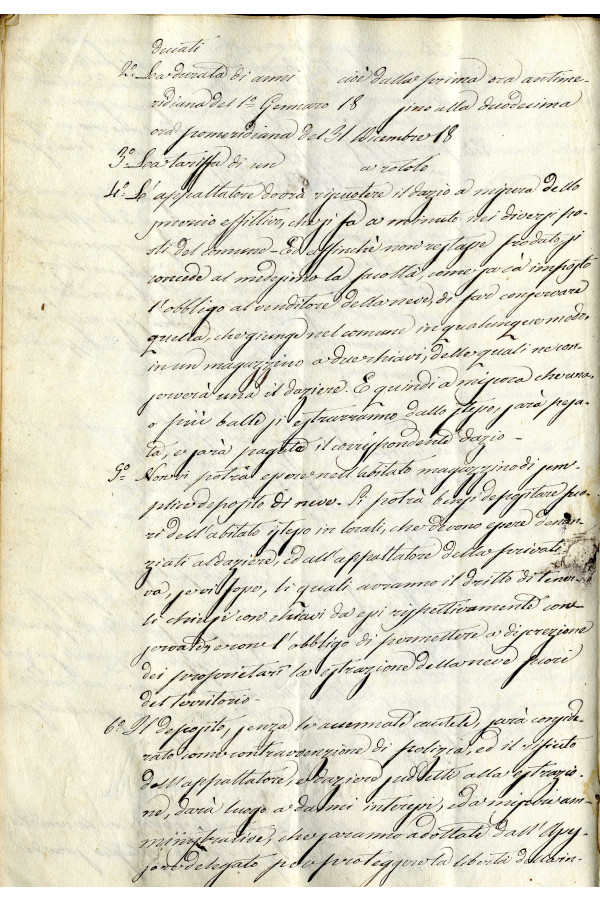 ducati
2.° La durata di anni cioè dalla prima ora antime-
ridiana del 1.° Gennaro 18 fino alla duodecima
ora pomeridiana del 31 Dicembre 18
3.° La tariffa di un a rotolo
4.° L'appaltatore dovrà riscuotere il dazio a misura dello
smercio effettivo, che si fa a minuto nei diversi po-
sti del comune. Ed affinchè non restasse frodato, si
concede al medesimo la facoltà, come sarà imposto
l'obbligo al venditore della neve, di far conservare
quella, che giunge nel comune in qualunque modo,
in un magazzino a due chiavi, delle quali ne con-
serverà una il daziere. E quindi a misura che una,
o più balle si estrarranno dallo stesso, sarà pesa-
ta, e sarà pagato il corrispondente dazio -
5.° Non vi potrà essere nell'abitato magazzino di sem-
plice deposito di neve. Si potrà bensì depositare fuo-
ri dell'abitato istesso in locali, che devono essere denun-
ziati al daziere, ed all'appaltatore della privati-
va, se vi fosse, li quali avranno il dritto di tener-
li chiusi con chiavi da essi rispettivamente con-
servate, e con l'obbligo di permettere a discrezione
dei proprietarî la estrazione della neve fuori
del territorio -
6.° Il deposito, senza le accennate cautele, sarà conside-
rato come contravvenzione di polizia, ed il rifiuto
dell'appaltatore, e daziere suddetti alla estrazio-
ne, darà luogo a danni interessi, ed a misure am-
ministrative, che saranno adottate dall'Asses-
sore delegato per proteggere la libertà della in-